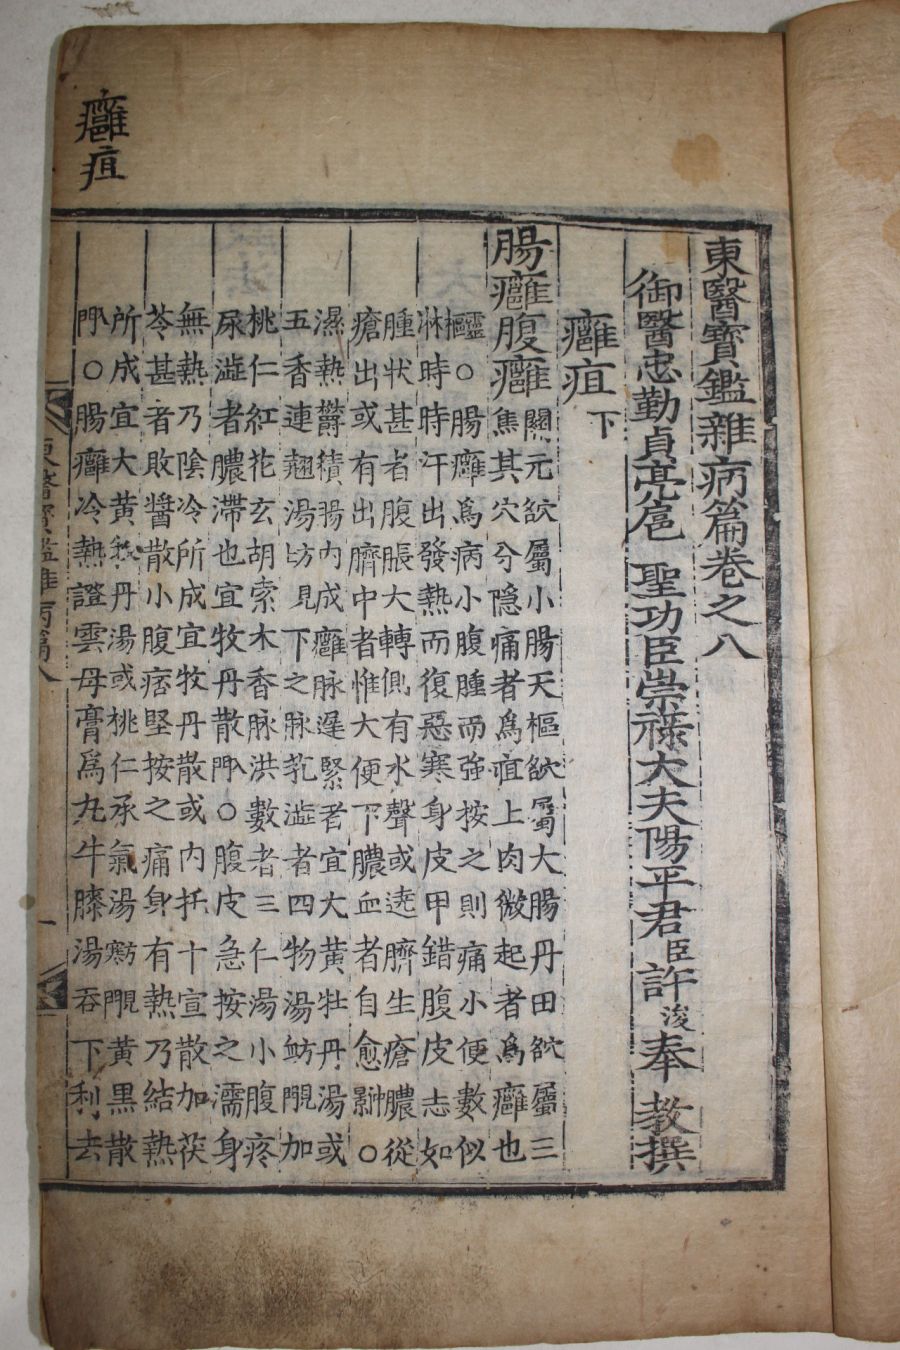 癰疽
東醫寶鑑雜病篇卷之八
御醫忠勤貞亮扈 聖功臣崇祿大夫陽平君臣許浚奉 教撰
癰疽下
腸癰腹癰
關元穴屬小腸天樞穴屬大腸丹田穴屬三
焦其穴分隱痛者爲疽上肉微起者爲癰也
靈樞○腸癰爲病小腹腫而强按之則痛小便數似
淋時時汗出發熱而復惡寒身皮甲錯腹皮急如
腫狀甚者腹脹大轉側有水聲或遶臍生瘡膿從
瘡出或有出臍中者惟大便下膿血者自愈○
濕熱鬱積腸內成癰脉遲緊者宜大黃牡丹湯或
五香連翹湯方見下之脉芤澁者四物湯方見血門加
桃仁紅花玄胡索木香脉洪數者三仁湯小腹疼
尿澁者膿滯也宜牧丹散入門○腹皮急按之濡身
無熱乃陰冷所成宜牧丹散或內托十宣散加茯
苓甚者敗醬散小腹痞堅按之痛身有熱乃結熱
所成宜大黃牧丹湯或桃仁承氣湯方見寒門黃黑散
入門○腸癰冷熱證雲母膏爲丸牛膝湯吞下利去
東醫寶鑑雜病篇八 一